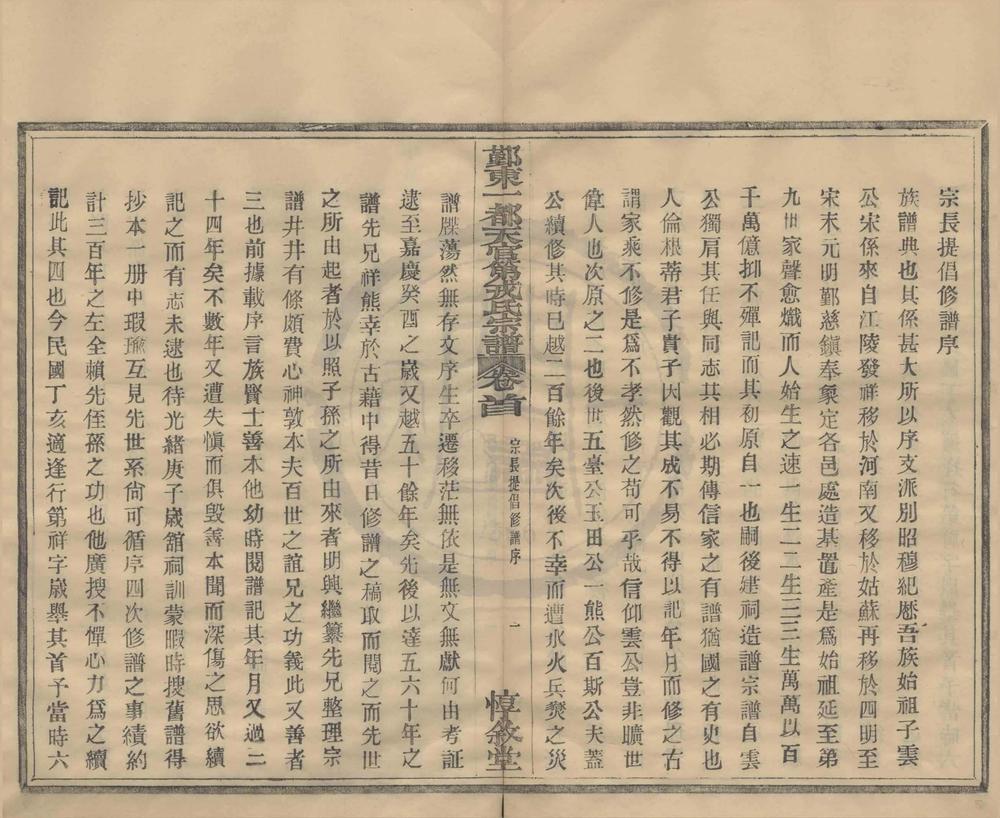 宗長提倡修譜序
族譜典也其係甚大所以序支派別昭穆紀歷吾族始祖子雲
公宋係來自江陵發祥移於河南又移於姑蘇再移於四明至
宋末元明鄞慈鎮奉象定各邑處造基置產是爲始祖延至第
九世家聲愈熾而人始生之速一生二二生三三生萬萬以百
千萬億抑不殫記而其初原自一也嗣後建祠造譜宗譜自雲
公獨肩其任與同志其相必期傳信家之有譜猶國之有史也
人倫根蒂君子貴子因觀其成不易不得以記年月而修之古
謂家乘不修是爲不孝然修之苟可乎哉信仰雲公豈非曠世
偉人也次原之二也後世五臺公玉田公一熊公百斯公夫蓋
公續修其時已越二百餘年矣次後不幸而遭水火兵燹之災
鄞東一都天官第戎氏宗譜 卷首 宗長提倡修譜序 一 惇敘堂
譜牒蕩然無存文序生卒遷移茫無依是無文無獻何由考証
逮至嘉慶癸酉之歲又越五十餘年矣先後以達五六十年之
譜先兄祥熊幸於古藉中得昔日修譜之稿取而閱之而先世
之所由起者於以照子孫之所由來者明與繼纂先兄整理宗
譜井井有條頗費心神敦本夫百世之誼兄之功義此又善者
三也前據載序言族賢士善本他幼時閱譜記其年月又過二
十四年矣不數年又遭失愼而俱毀善本聞而深傷之思欲續
記之而有志未逮也待光緒庚子歲舘祠訓蒙暇時搜舊譜得
抄本一册中瑕瑜互見先世系尙可循序四次修譜之事績約
計三百年之左全賴先侄孫之功也他廣搜不憚心力爲之續
記此其四也今民國丁亥適逢行第祥字歲舉其首予當時六